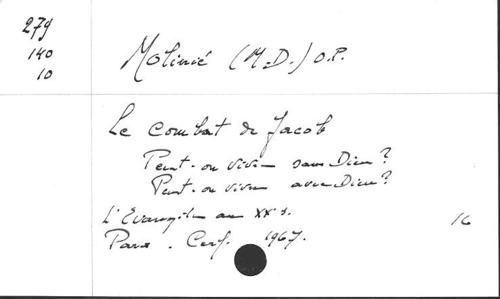 279
140
10
Molinié (M.D.) O.P.
Le combat de Jacob
Peut-on vivre sans Dieu?
Peut-on vivre avec Dieu?
L'Evangile au XXe s.
16
Paris. Cerf. 1967.